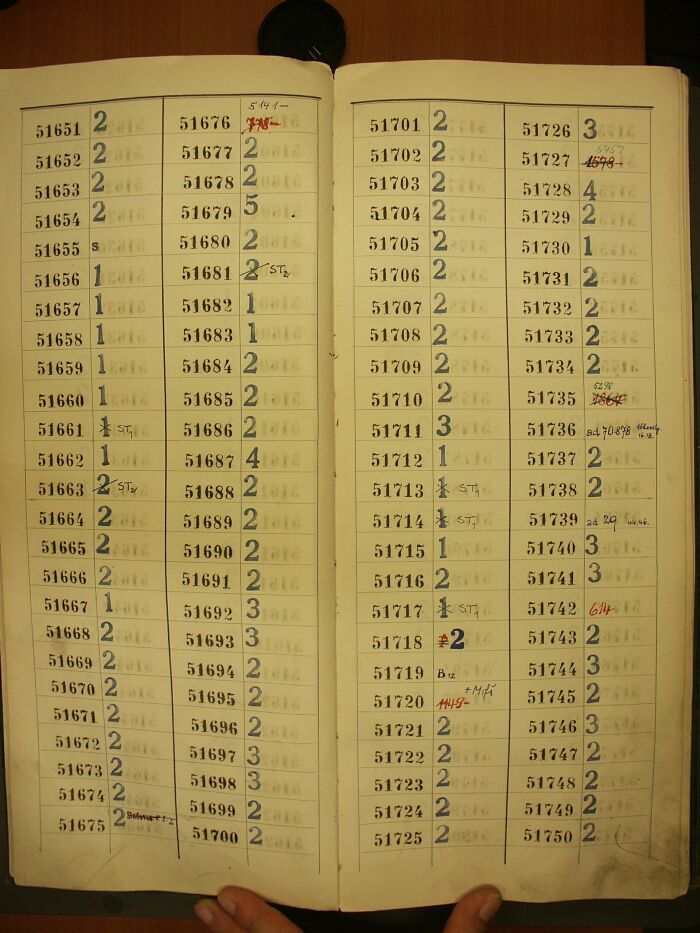 51651 2
51652 2
51653 2
51654 2
51655 s
51656 1
51657 1
51658 1
51659 1
51660 1
51661 1 ST1
51662 1
51663 2 ST2
51664 2
51665 2
51666 2
51667 1
51668 2
51669 2
51670 2
51671 2
51672 2
51673 2
51674 2
51675 2
5141-
51676 778-
51677 2
51678 2
51679 5
51680 2
51681 2 ST2
51682 1
51683 1
51684 2
51685 2
51686 2
51687 4
51688 2
51689 2
51690 2
51691 2
51692 3
51693 3
51694 2
51695 2
51696 2
51697 3
51698 3
51699 2
51700 2
51701 2
51702 2
51703 2
51704 2
51705 2
51706 2
51707 2
51708 2
51709 2
51710 2
51711 3
51712 1
51713 1 ST1
51714 1 ST1
51715 1
51716 2
51717 1 ST1
51718 2
51719 B12
51720 1149-
51721 2
51722 2
51723 2
51724 2
51725 2
51726 3
5457
51727 1578-
51728 4
51729 2
51730 1
51731 2
51732 2
51733 2
51734 2
5298
51735 1864
51736 ad 70.878
51737 2
51738 2
51739 ad 29
51740 3
51741 3
51742 614
51743 2
51744 3
51745 2
51746 3
51747 2
51748 2
51749 2
51750 2